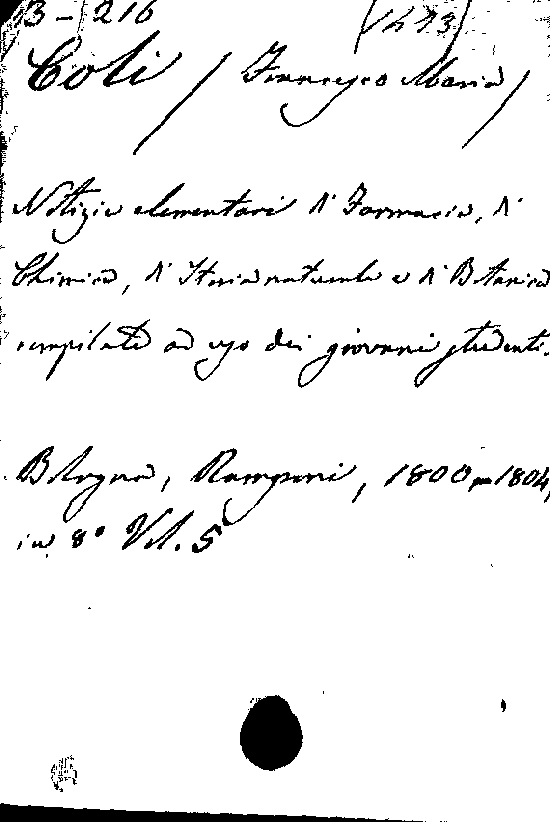 13 - 216 (1473)
Coli / Francesco Maria /
Notizie elementari di Farmacia, di
Chimica, di Storia naturale e di Botanica
compilate ad uso dei giovani studenti.
Bologna, Ramponi, 1800 - 1804,
in 8° Vol. 5